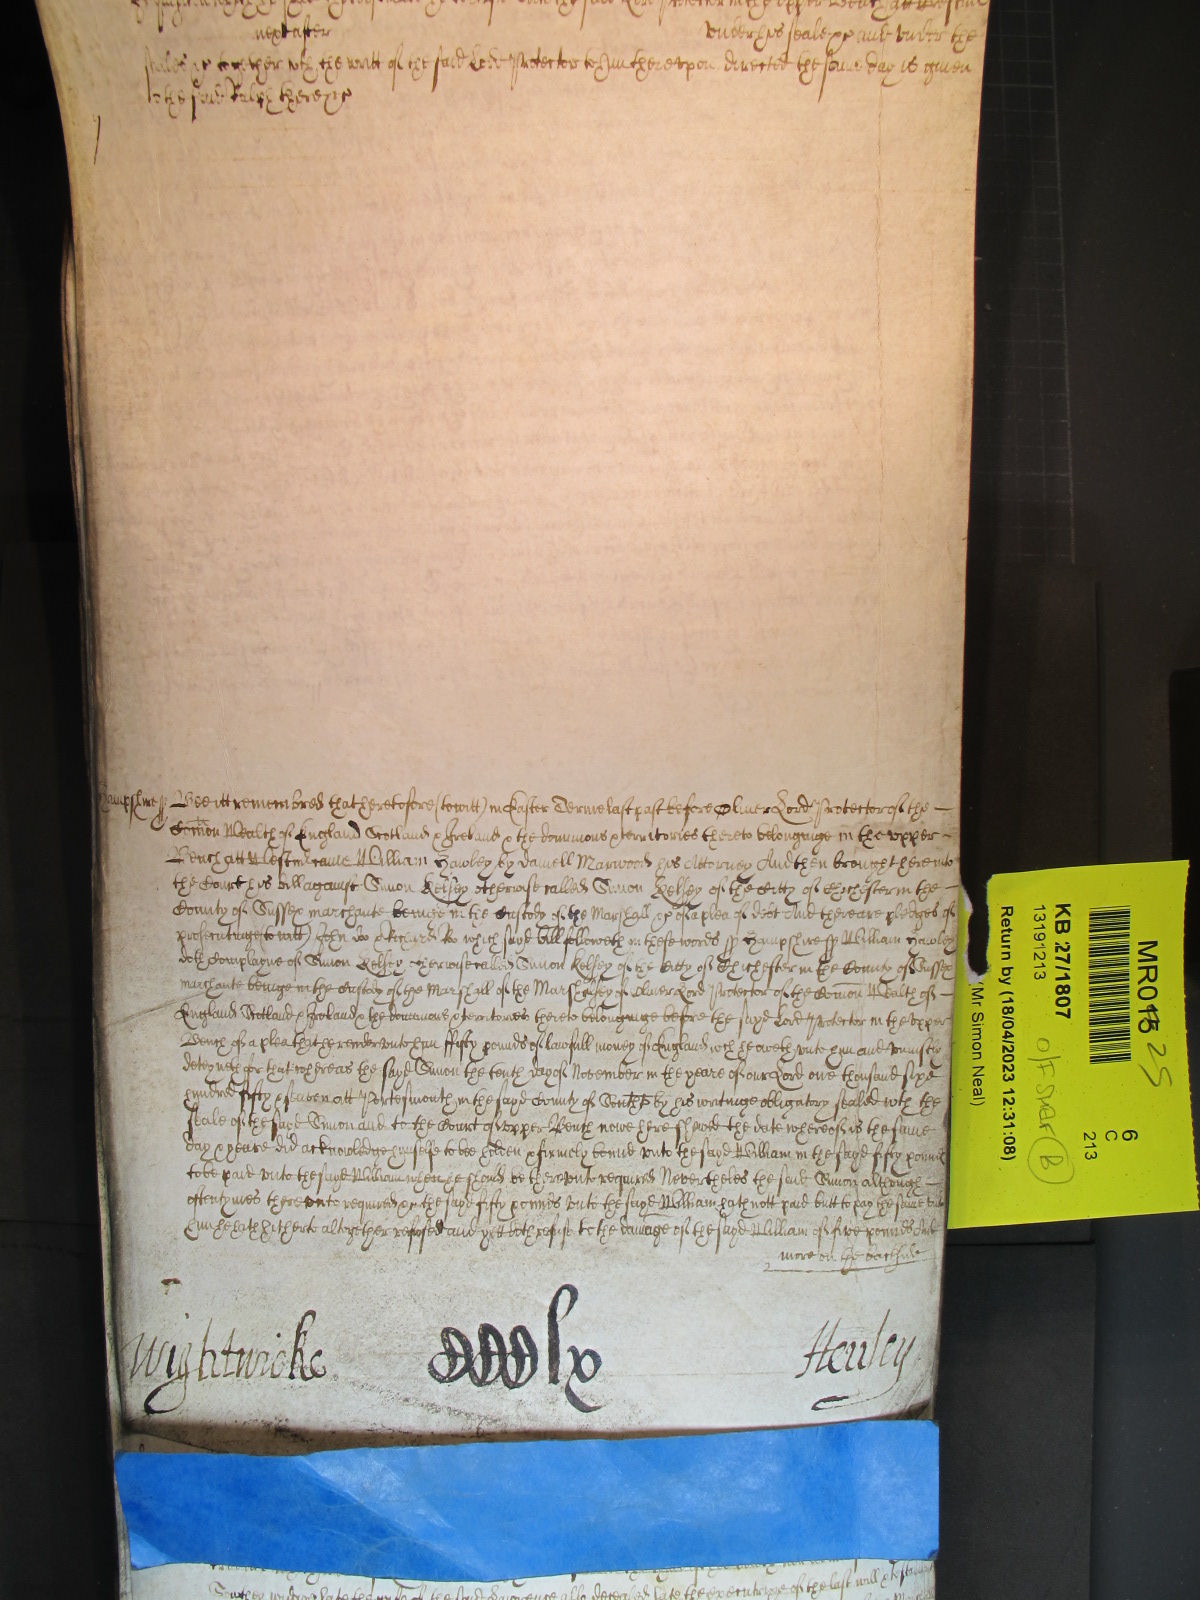 next after under his seale &c and under the
seales &c together with the writt of the said Lord Protector to him thereupon directed the same day is given
to the said Ralph there &c
Hampshire ss Bee itt remembred that heretofore (to witt) in Easter Terme last past before Oliver Lord Protector of the
Comon Wealth of England Scotland & Ireland & the dominions & territories thereto belonginge in the upper
Bench att Westmr came William Hawley by Daniell Marwood his Attorney And then brought here into
the Court his bill against Simon Kelsey otherwise called Simon Kelsey of the Citty of Chichester in the
County of Sussex marchante beinge in the Custody of the Marshall &c of a plea of debt And there are pledges of
prosecutinge (to witt) John Do & Richard Ro which sayd bill followeth in these words ss Hampshire ss William Hawley
doth Complayne of Simon Kelsey otherwise called Simon Kelsey of the Citty of Chichester in the County of Sussex
marchante beinge in the Custody of the Marshall of the Marshalsey of Oliver Lord Protector of the Comon Wealth of
England Scotland & Ireland & the dominions & territories thereto belonginge before the sayd Lord Protector in the upper
Bench of a plea that he render unto him fifty pounds of lawfull money of England wch he oweth unto him and uniustly
deteyneth for that whereas the sayd Simon the tenth day of November in the yeare of our Lord one thousand sixe
hundred fifty & seaven att Portesmouth in the sayd County of Southt by his writinge obligatory sealed with the
seale of the sayd Simon and to the Court of upper Bench nowe here shewed the date whereof is the same
day & yeare did acknowledge himselfe to bee holden & firmely bound unto the sayd William in the sayd fifty pounds
to be paid unto the sayd William when he should be thereunto required Neverthelesse the said Simon although
oftentymes thereunto required &c the sayd fifty pounds unto the sayd William hath nott paid butt to pay the same unto
him hath hitherto altogether refused and yet doth refuse to the damage of the sayd William of five pounds And
more on the backside
Wightwicke
Henley
MR016
25
6
C
213
KB 27/1807
13191213
O/F SNDF B
(Mr Simon Neal)
Return by (18/04/2023 12:31:08)